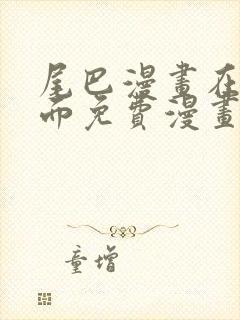 尾巴漫畫在
而免費漫畫
童增